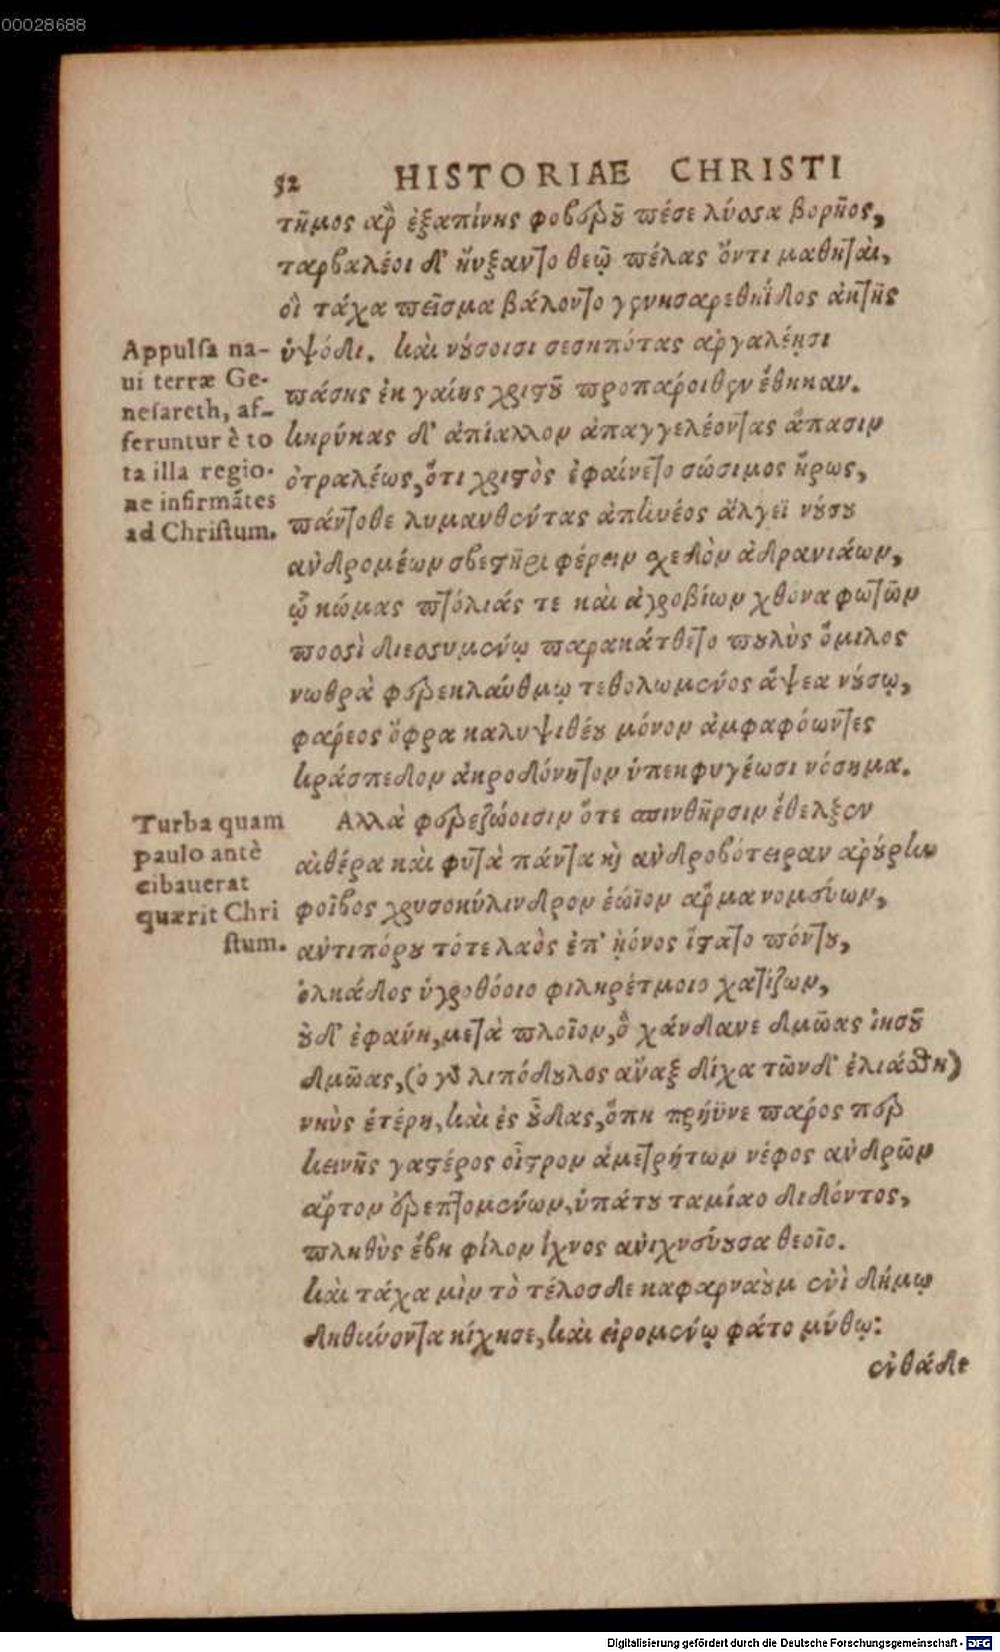 00028688
52 HISTORIAE CHRISTI
τῆμος ἂρ ἐξαπίνης φοβεροῦ πέσε λύσσα βορῆος,
ταρβαλέοι δ' ηὔξαντο θεῷ πέλας ὄντι μαθηταὶ,
οἳ τάχα πεῖσμα βάλοντο γενησαρεθηΐδος ἀκτῆς
ὑψόθι. καὶ νούσοισι σεσηπότας ἀργαλέῃσι
πάσης ἐκ γαίης χριστοῦ προπάροιθεν ἔθηκαν.
κήρυκας δ' ἀπίαλλον ἀπαγγελέοντας ἅπασιν
ὀτραλέως, ὅτι χριστὸς ἐφαίνετο σώσιμος ἥρως,
πάντοθε λυμανθέντας ἀπηνέος ἄλγεϊ νούσου
ἀνδρομέων σβεστῆρι φέρειν σχεδὸν ἀδρανιάων,
ᾧ κώμας πτόλιάς τε καὶ ἀγροβίων χθόνα φωτῶν
ποσσὶ διεσσυμένῳ παρακάτθετο πουλὺς ὅμιλος
νωθρὰ φερεκλαύθμῳ τεθολωμένος ἅψεα νούσῳ,
φάρεος ὄφρα καλυψιθέου μόνον ἀμφαφόωντες
κράσπεδον ἀκροδόνητον ὑπεκφυγέωσι νόσημα.
Ἀλλὰ φερεζώοισιν ὅτε σπινθῆρσιν ἔθελξεν
αἰθέρα καὶ φυτὰ πάντα καὶ ἀνδροβότειραν ἀρούρην
φοῖβος χρυσοκύλινδρον ἑώϊον ἅρμα νομεύων,
ἀντιπόρου τότε λαὸς ἐπ' ᾐόνος ἵστατο πόντου,
ὁλκάδος ὑγροθόοιο φιληρέτμοιο χατίζων,
οὐδ' ἐφάνη, μετὰ πλοῖον, ὃ χάνδανε δμῶας ἰησοῦ
δμῶας, (ὁ γὰρ λιπόδουλος ἄναξ δίχα τῶνδ' ἐλιάσθη)
νηὺς ἑτέρη, καὶ ἐς οὖδας, ὅπη πρήϋνε πάρος περ
κεινῆς γαστέρος οἶστρον ἀμετρήτων νέφος ἀνδρῶν
ἄρτον ἐρεπτομένων, ὑπάτου ταμίαο διδόντος,
πληθὺς ἔβη φίλον ἴχνος ἀνιχνεύουσα θεοῖο.
καὶ τάχα μὶν τὸ τέλοσδε καφαρναοὺμ ἐνὶ δήμῳ
δηθύνοντα κίχησε, καὶ εἰρομένῳ φάτο μύθῳ:
ἐνθάδε
Appulsa na-
ui terræ Ge-
nesareth, af-
feruntur è to
ta illa regio-
ne infirmātes
ad Christum.
Turba quam
paulo antè
cibauerat
quærit Chri
stum.
Digitalisierung gefördert durch die Deutsche Forschungsgemeinschaft - DFG